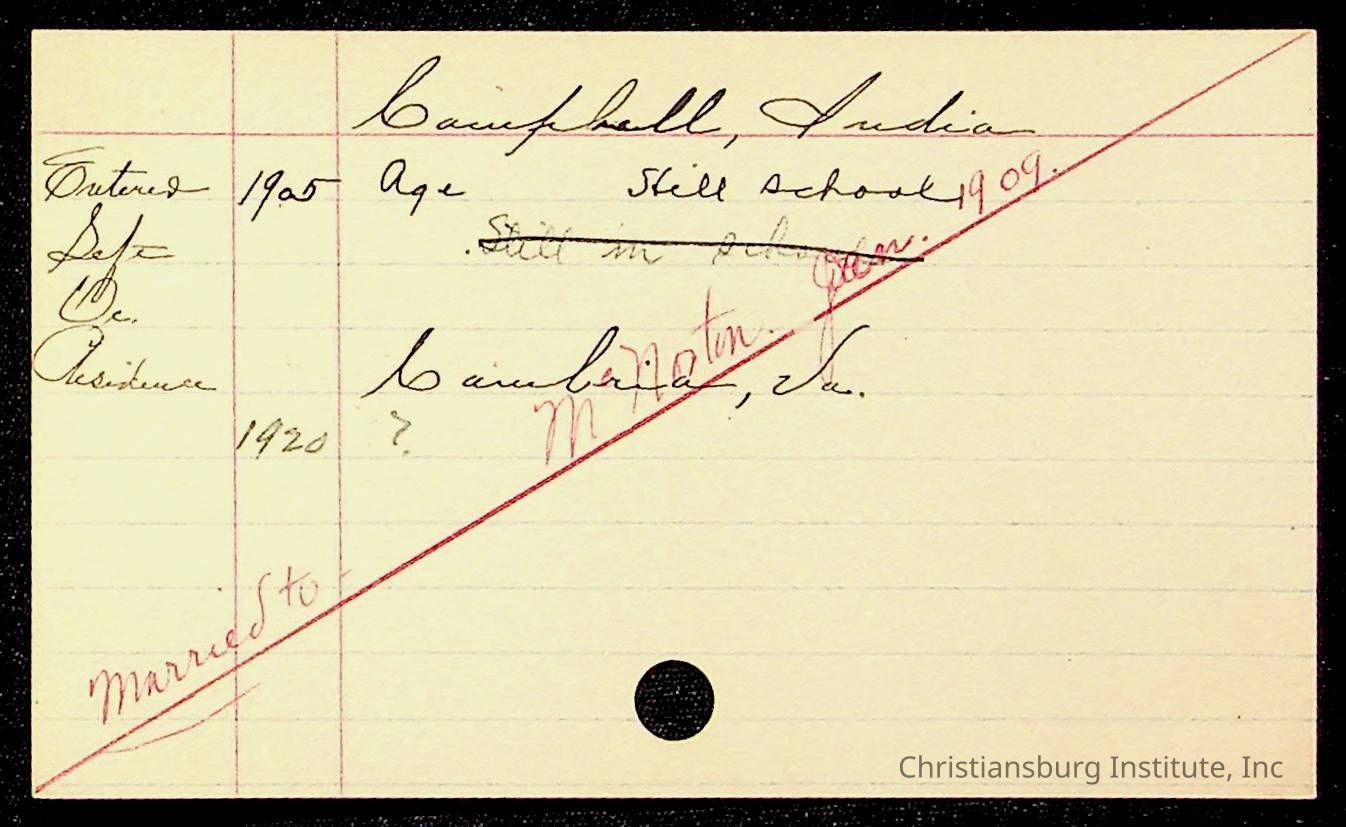 Campbell, India
Entered 1905 Age Still school 1909.
Left
Still in school
Oc.
Residence Cambria, Va.
1920 ?
Married to
Norton.
Christiansburg Institute, Inc